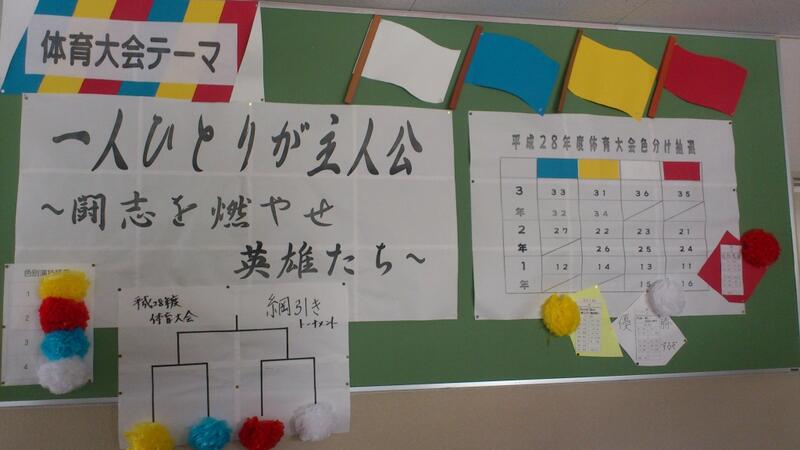 体育大会テーマ
一人ひとりが主人公
~闘志を燃やせ
英雄たち~
平成28年度体育大会色分け抽選
3 33 31 36 35
年 32 34
2 27 22 23 21
年 26 25 24
1 12 14 13 11
年 15 16
1
2
3
4
平成28年度
体育大会
綱引き
トーナメント
優勝
するぞ